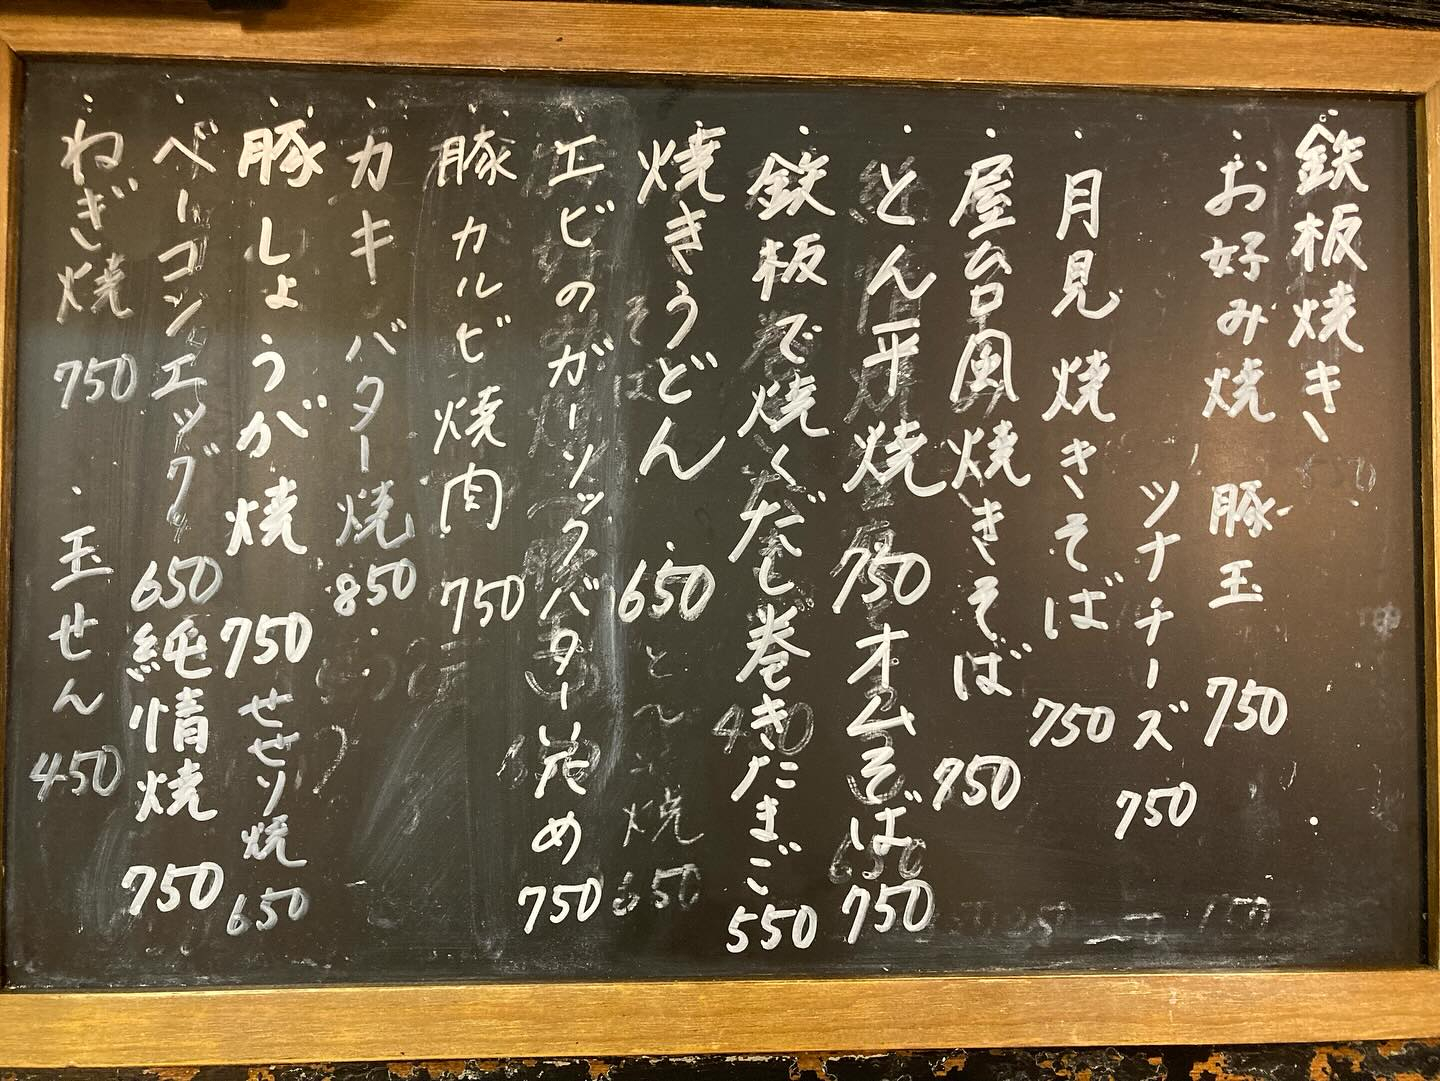 鉄板焼き
・お好み焼 豚玉 750
ツナチーズ 750
・月見焼きそば 750
・屋台風焼きそば 750
・とん平焼 750 オムそば 750
・鉄板で焼くだし巻きたまご 550
・焼きうどん 650
・エビのガーリックバターいため 750
・豚カルビ焼肉 750
・カキバター焼 850
・豚しょうが焼 750 せせり焼 650
・ベーコンエッグ 650 純情焼 750
・ねぎ焼 750 ・玉せん 450